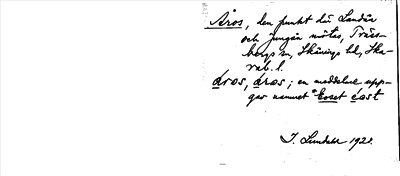 Åros, den punkt där Lundån
och Ljungån mötas, Träss-
bergs sn, Skånings hd, Ska-
rab. l.
åros, åros; en meddelare upp-
gav namnet Eoset
I. Lundahl 1928.